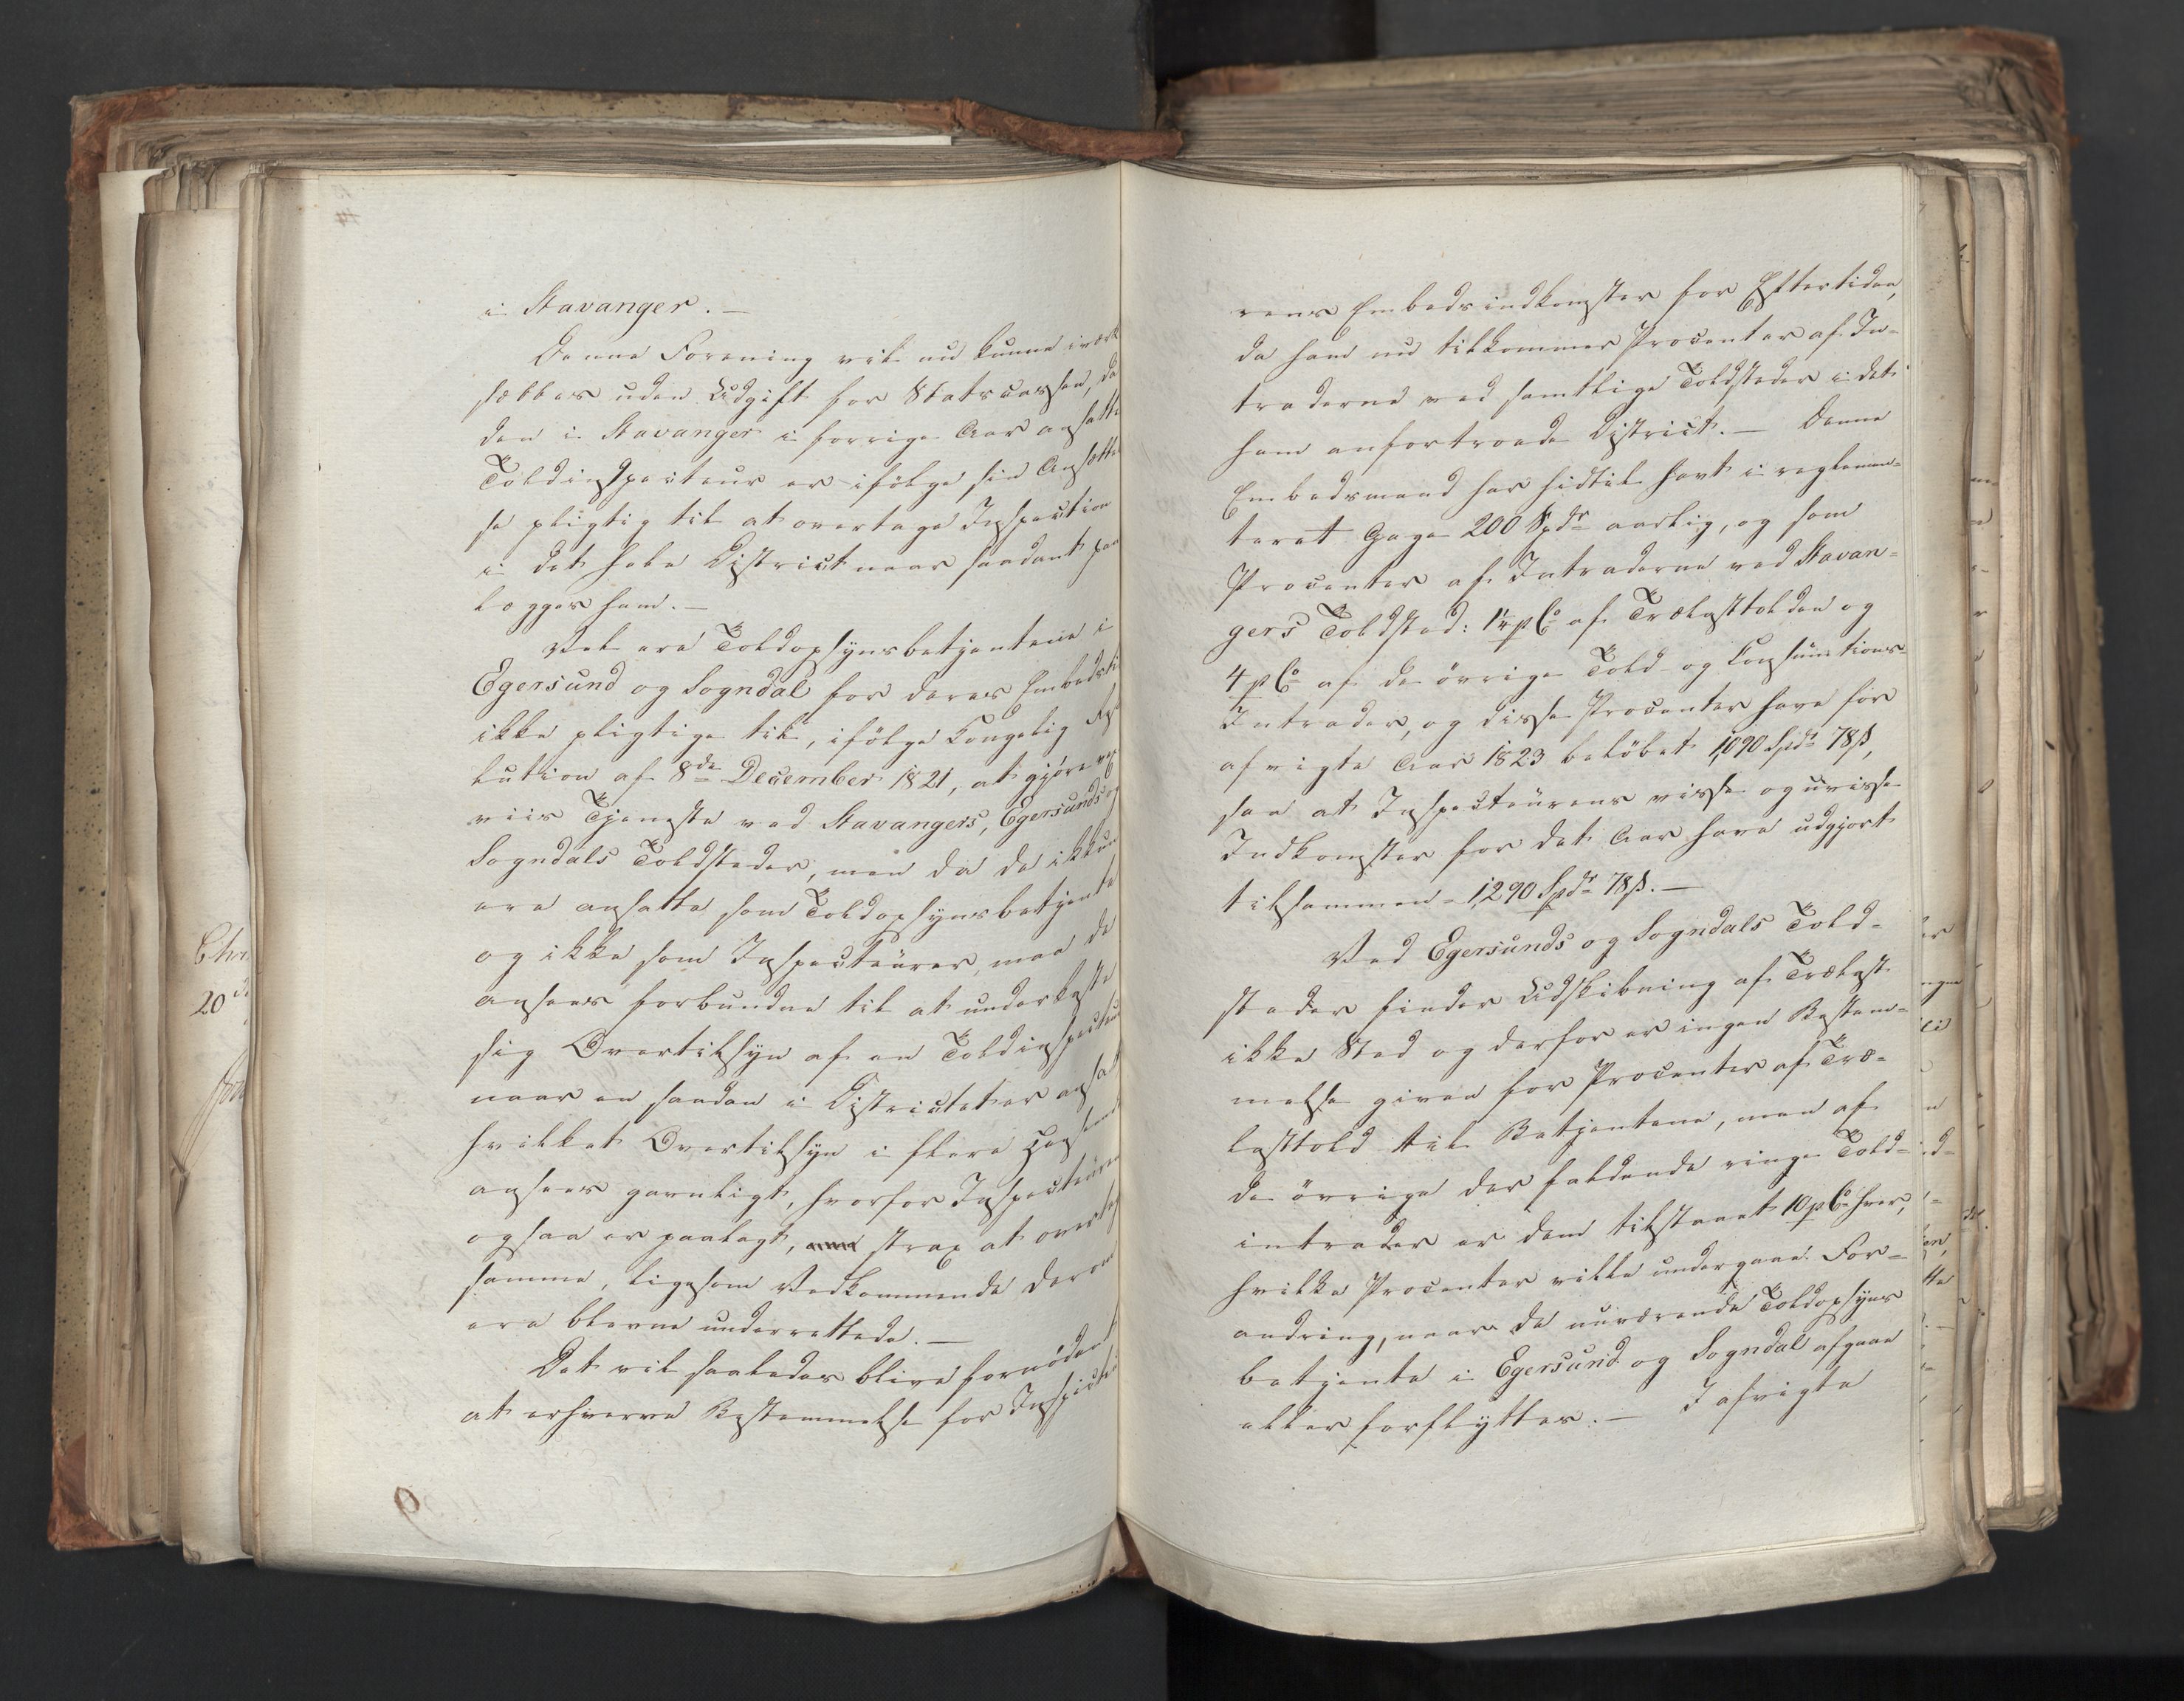 i Stavanger. —
Denne Forening vil nu kunne iværk
sættes uden Udgift for Statscassen, da
den i Stavanger i forrige Aar ansatte
Toldinspecteur er ifölge sin Ansættel
se pligtig til at overtage Inspection
i det hele District naar saadant paa
lægges ham. —
Vel ere Toldopsynsbetjentene i
Egersund og Sogndal for deres Embedsti
ikke pligtige til, ifölge Kongelig Reso
lution af 8de December 1821, at gjöre vex
viis Tjeneste ved Stavangers, Egersunds og
Sogndals Toldsteder, men da de ikkun
ere ansatte som Toldopsynsbetjente
og ikke som Inspecteurer, maa de
ansees forbundne til at underkaste
sig Overtilsyn af en Toldinspecteur
naar en saadan i Districtet er ansat
hvilket Overtilsyn i flere Hensende
ansees gavnligt, hvorfor Inspecteuren
ogsaa er paalagt, strax at overtag
samme, ligesom Vedkommende derom
ere blevne underrettede. —
Det vil saaledes blive fornödent
at erhverve Bestemmelse for Inspecteu
rens Embedsindkomster for Eftertiden,
da ham nu tilkommer Procenter af In-
traderne ved samtlige Toldsteder i det
ham anfortroede District. — Denne
Embedsmand har hidtil havt i reglemen-
teret Gage 200 Spdr aarlig, og som
Procenter af Intraderne ved Stavan-
gers Toldsted: 1¼ pCo af Trælasttolden og
4 pCo af de övrige Told- og Consumtions-
Intrader, og disse Procenter have for
afvigte Aar 1823 belöbet 1,090 Spdr 78 ß,
saa at Inspecteurens visse og uvisse
Indkomster for det Aar have udgjort
tilsammen - 1,290 Spdr 78 ß. —
Ved Egersunds og Sogndals Told-
steder finder Udskibning af Trælast
ikke Sted og derfor er ingen Bestem-
melse given for Procenter af Træ-
lasttold til Betjentene, men af
de övrige der faldende ringe Told-
intrader er dem tilstaaet 10 pCo hver,
hvilke Procenter ville undergaae For-
andring, naar de nuværende Toldopsyns
betjente i Egersund og Sogndal afgaae
eller forflyttes. — I afvigte